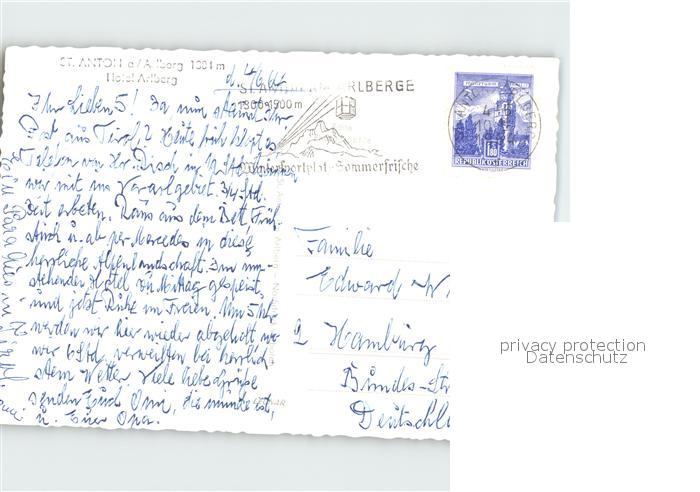 ST. ANTON a/Arlberg 1304 m
Hotel Arlberg
ST. ANTON AM ARLBERGE
1300-1500 m
Wintersportplatz-Sommerfrische
REPUBLIK ÖSTERREICH
Ihr Lieben 5! Da, nun staunt Ihr
Post aus Tirol? Heute früh klopft es
Telefon von Hr. Disch in
wir mit ins Vorarlgebiet. 3/4 Std.
Zeit erbeten. Raus aus dem Bett, Früh-
stück u. ab per Mercedes in diese
herrliche Alpenlandschaft. Im um-
stehenden Hotel zu Mittag gespeist,
und jetzt Ruhe im Freien. Um 5 Uhr
werden wir hier wieder abgeholt wo
wir 6 Std. verweilten bei herrlich-
stem Wetter. Viele liebe Grüße
senden Euch Omi, die müde ist,
u. Euer Opa.
Familie
Edward
2 Hamburg
Bundes-Str
Deutschl
privacy protection
Datenschutz